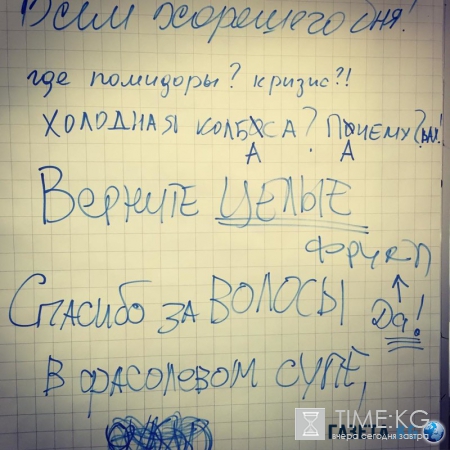 Всем хорошего дня!
где помидоры? кризис?!
ХОЛОДНАЯ КОЛБАСА? ПОЧЕМУ?
А А
ВЕРНИТЕ ЦЕЛЫЕ
ФРУКТЫ
СПАСИБО ЗА ВОЛОСЫ Да!
В ФАСОЛЕВОМ СУПЕ,
TIME.KG
вчера сегодня завтра
ГАЗЕТА